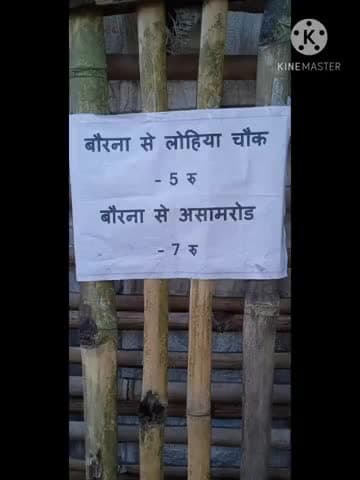 KINEMASTER
बौरना से लोहिया चौक
- 5 रु
बौरना से असामरोड
- 7 रु